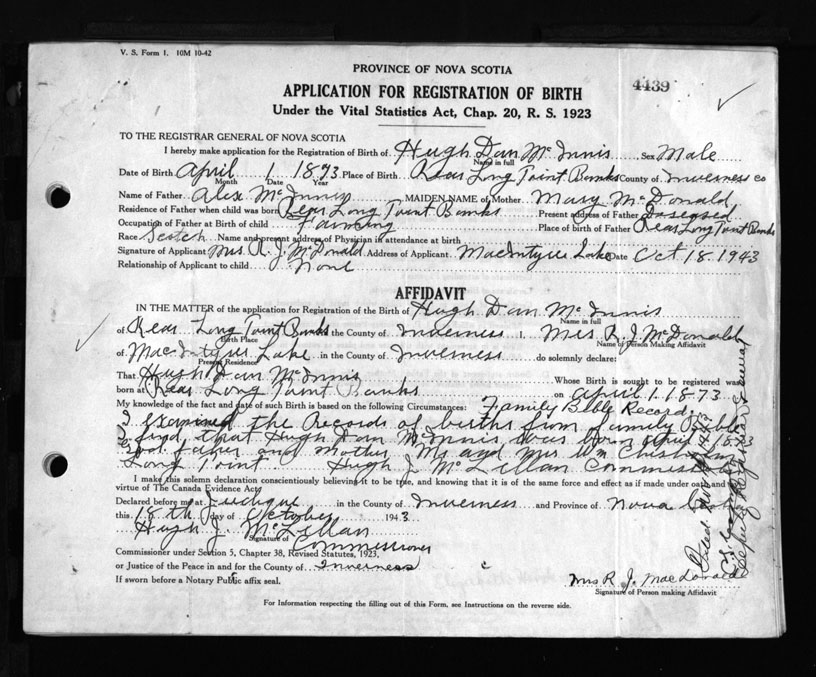 V. S. Form 1. 10M 10-42
PROVINCE OF NOVA SCOTIA
4439
APPLICATION FOR REGISTRATION OF BIRTH
Under the Vital Statistics Act, Chap. 20, R. S. 1923
TO THE REGISTRAR GENERAL OF NOVA SCOTIA
I hereby make application for the Registration of Birth of Hugh Dan McInnis Sex Male
Name in full
Date of Birth April 1 1873 Place of Birth Rear Long Point Banks County of Inverness Co
Month Date Year
Name of Father Alex McInnis MAIDEN NAME of Mother Mary McDonald
Residence of Father when child was born Rear Long Point Banks Present address of Father Deseased
Occupation of Father at Birth of child Farming Place of birth of Father Rear Long Point Banks
Race Scotch Name and present address of Physician in attendance at birth
Signature of Applicant Mrs. R. J. McDonald Address of Applicant MacIntyres Lake Date Oct 18 1943
Relationship of Applicant to child None
AFFIDAVIT
IN THE MATTER of the application for Registration of the Birth of Hugh Dan McInnis
Name in full
of Rear Long Point Banks the County of Inverness I, Mrs R. J. McDonald
Birth Place Name of Person Making Affidavit
of MacIntyres Lake in the County of Inverness do solemnly declare:
Present Residence
That Hugh Dan McInnis Whose Birth is sought to be registered was
born at Rear Long Point Banks on April 1 1873
My knowledge of the fact and date of such Birth is based on the following Circumstances: Family Bible Record.
I examined the Records of births from family Bible
I find that Hugh Dan McInnis was born April 1 1873
God father and mother, Mr and Mrs Wm Chisholm
Long Point Hugh J. McLellan Commissioner
I make this solemn declaration conscientiously believing it to be true, and knowing that it is of the same force and effect as if made under oath and by
virtue of The Canada Evidence Act.
Declared before me at Judique in the County of Inverness and Province of Nova Scotia
this 18th day of October 1943
Hugh J. McLellan
Signature of
Commissioner
Commissioner under Section 5, Chapter 38, Revised Statutes, 1923,
or Justice of the Peace in and for the County of Inverness
If sworn before a Notary Public affix seal.
Mrs R. J. MacDonald
Signature of Person making Affidavit
For Information respecting the filling out of this Form, see Instructions on the reverse side.
Deputy Registrar General